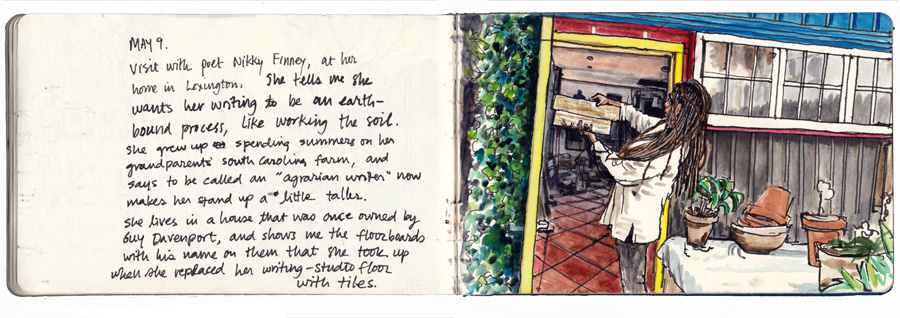 MAY 9.
Visit with poet Nikky Finney, at her
home in Lexington. She tells me she
wants her writing to be an earth-
bound process, like working the soil.
She grew up spending summers on her
grandparents' South Carolina farm, and
says to be called an "agrarian writer" now
makes her stand up a little taller.
She lives in a house that was once owned by
Guy Davenport, and shows me the floorboards
with his name on them that she took up
when she replaced her writing-studio floor
with tiles.